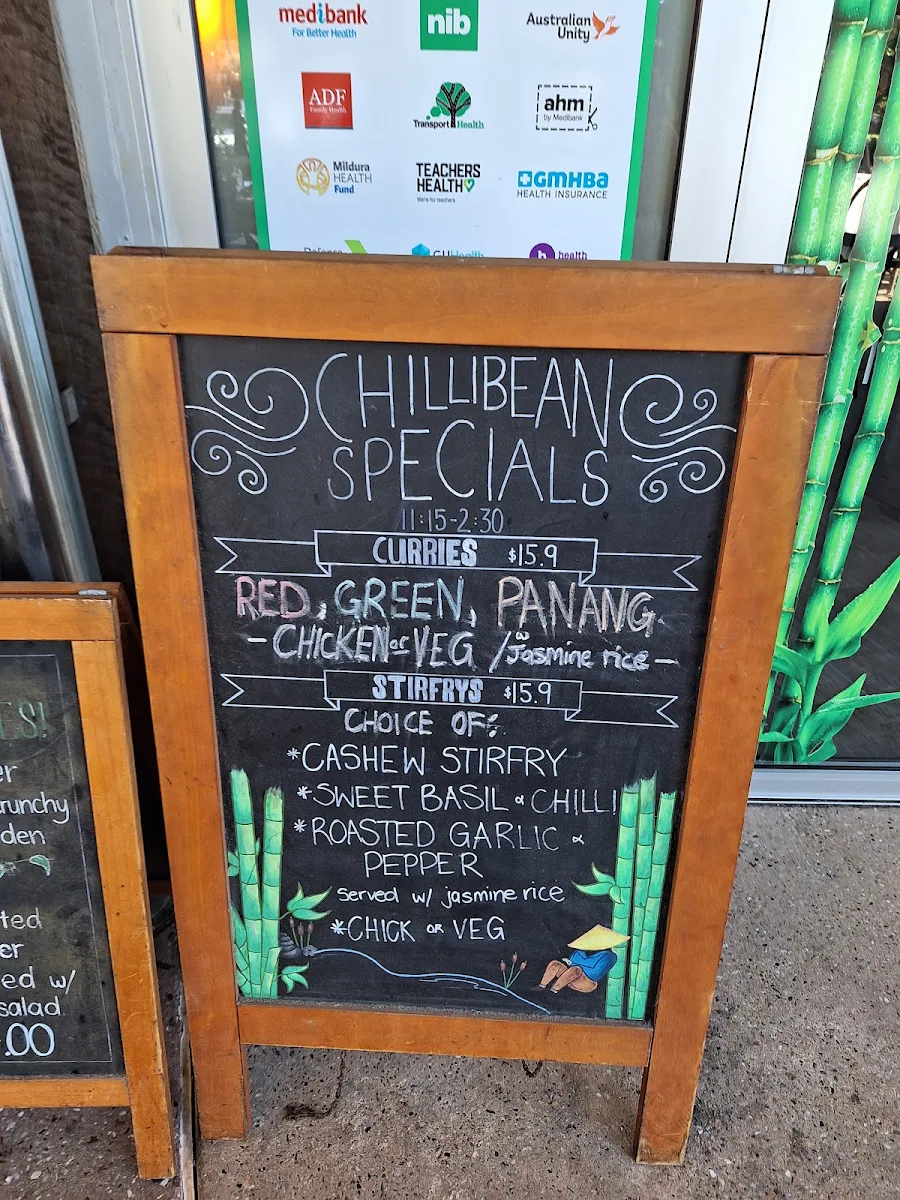 medibank
For Better Health
nib
Australian
Unity
ADF
Family Health
Transport Health
ahm
by Medibank
Mildura
HEALTH
Fund
TEACHERS
HEALTH
GMHBA
HEALTH INSURANCE
health
CHILLIBEAN
SPECIALS
11:15-2:30
CURRIES $15.9
RED, GREEN, PANANG
- CHICKEN or VEG / w Jasmine rice -
STIRFRYS $15.9
CHOICE OF:
*CASHEW STIRFRY
*SWEET BASIL & CHILLI
*ROASTED GARLIC &
PEPPER
served w/ jasmine rice
*CHICK OR VEG
ES!
er
runchy
den
ted
er
ed w/
salad
.00